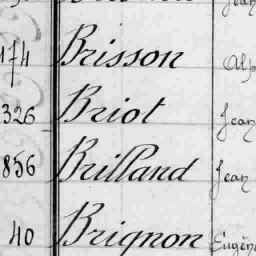 174 Brisson Alp
326 Briot Jean
856 Brilland Jean
40 Brignon Eugèn